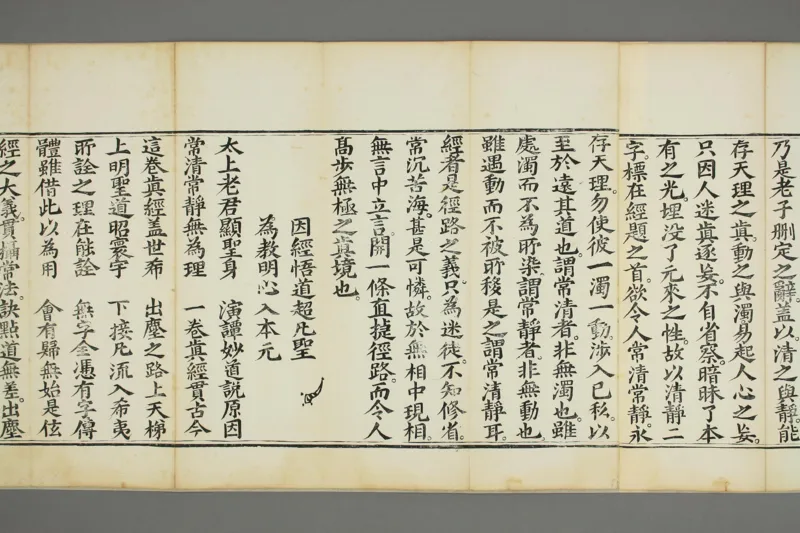 乃是老子刪定之辭。蓋以清之與靜。能
存天理之真。動之與濁易起人心之妄。
只因人迷真逐妄。不自省察。暗昧了本
有之光。埋没了元來之性。故以清靜二
字。標在經題之首。欲令人常清常靜。永
存天理。勿使彼一濁一動。涉入已私。以
至於遠其道也。謂常清者。非無濁也。雖
處濁而不為所染。謂常靜者。非無動也。
雖遇動而不被所移。是之謂常清靜耳。
經者是徑路之義。只為迷徒。不知修省。
常沉苦海。甚是可憐。故於無相中現相。
無言中立言。開一條直捷徑路。而令人
髙步無極之真境也。
因經悟道超凡聖
為教明心入本元
太上老君顯聖身 演譚妙道説原因
常清常靜無為理 一卷真經貫古今
這卷真經蓋世希 出塵之路上天梯
上明聖道昭寰宇 下接凡流入希夷
所詮之理在能詮 無字全憑有字傳
體雖借此以為用 會有歸無始是伭
經之大義貫攝常法。訣點道無差。出塵